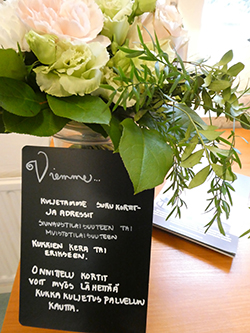 Viemme...
KULJETAMME SURU KORTIT-
JA ADRESSIT
SIUNAUSTILAISUUTEEN TAI
MUISTOTILAISUUTEEN
KUKKIEN KERA TAI
ERIKSEEN.
ONNITTELU KORTIT
VOIT MYÖS LÄHETTÄÄ
KUKKA KULJETUS PALVELUN
KAUTTA.